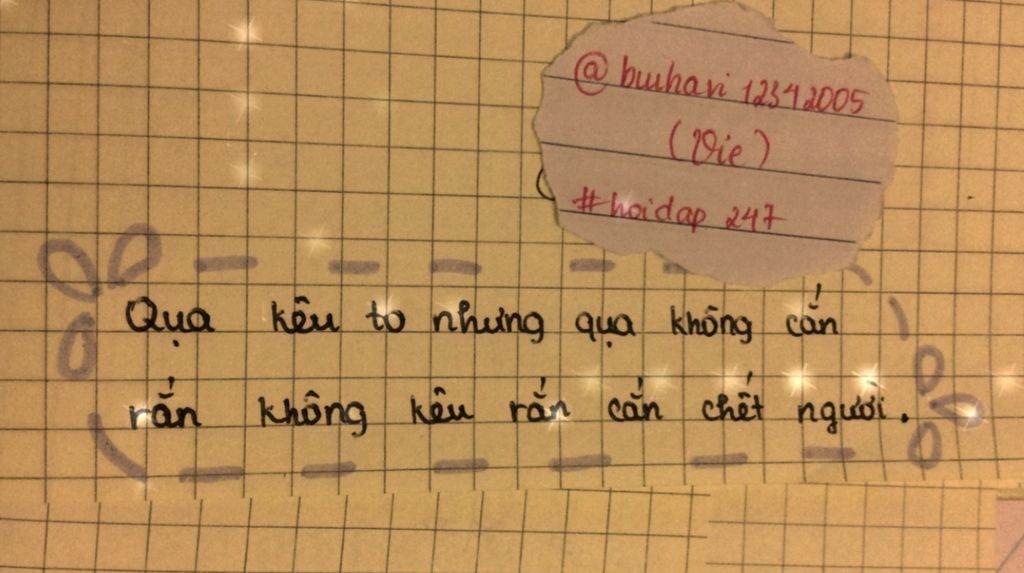 @buihavi12342005
(Vie)
#hoidap247
Quạ kêu to nhưng quạ không cắn
rắn không kêu rắn cắn chết người.